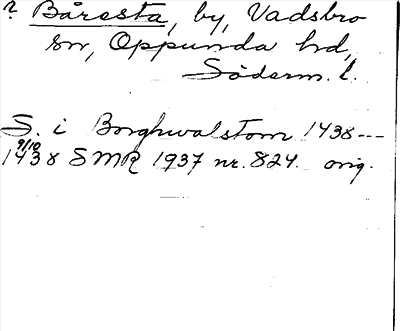 ? Båresta, by, Vadsbro
sn, Oppunda hd,
Söderm. l.
S. i Borghwalstom 1438---
9/10
1438 SMR 1937 nr. 824. orig.